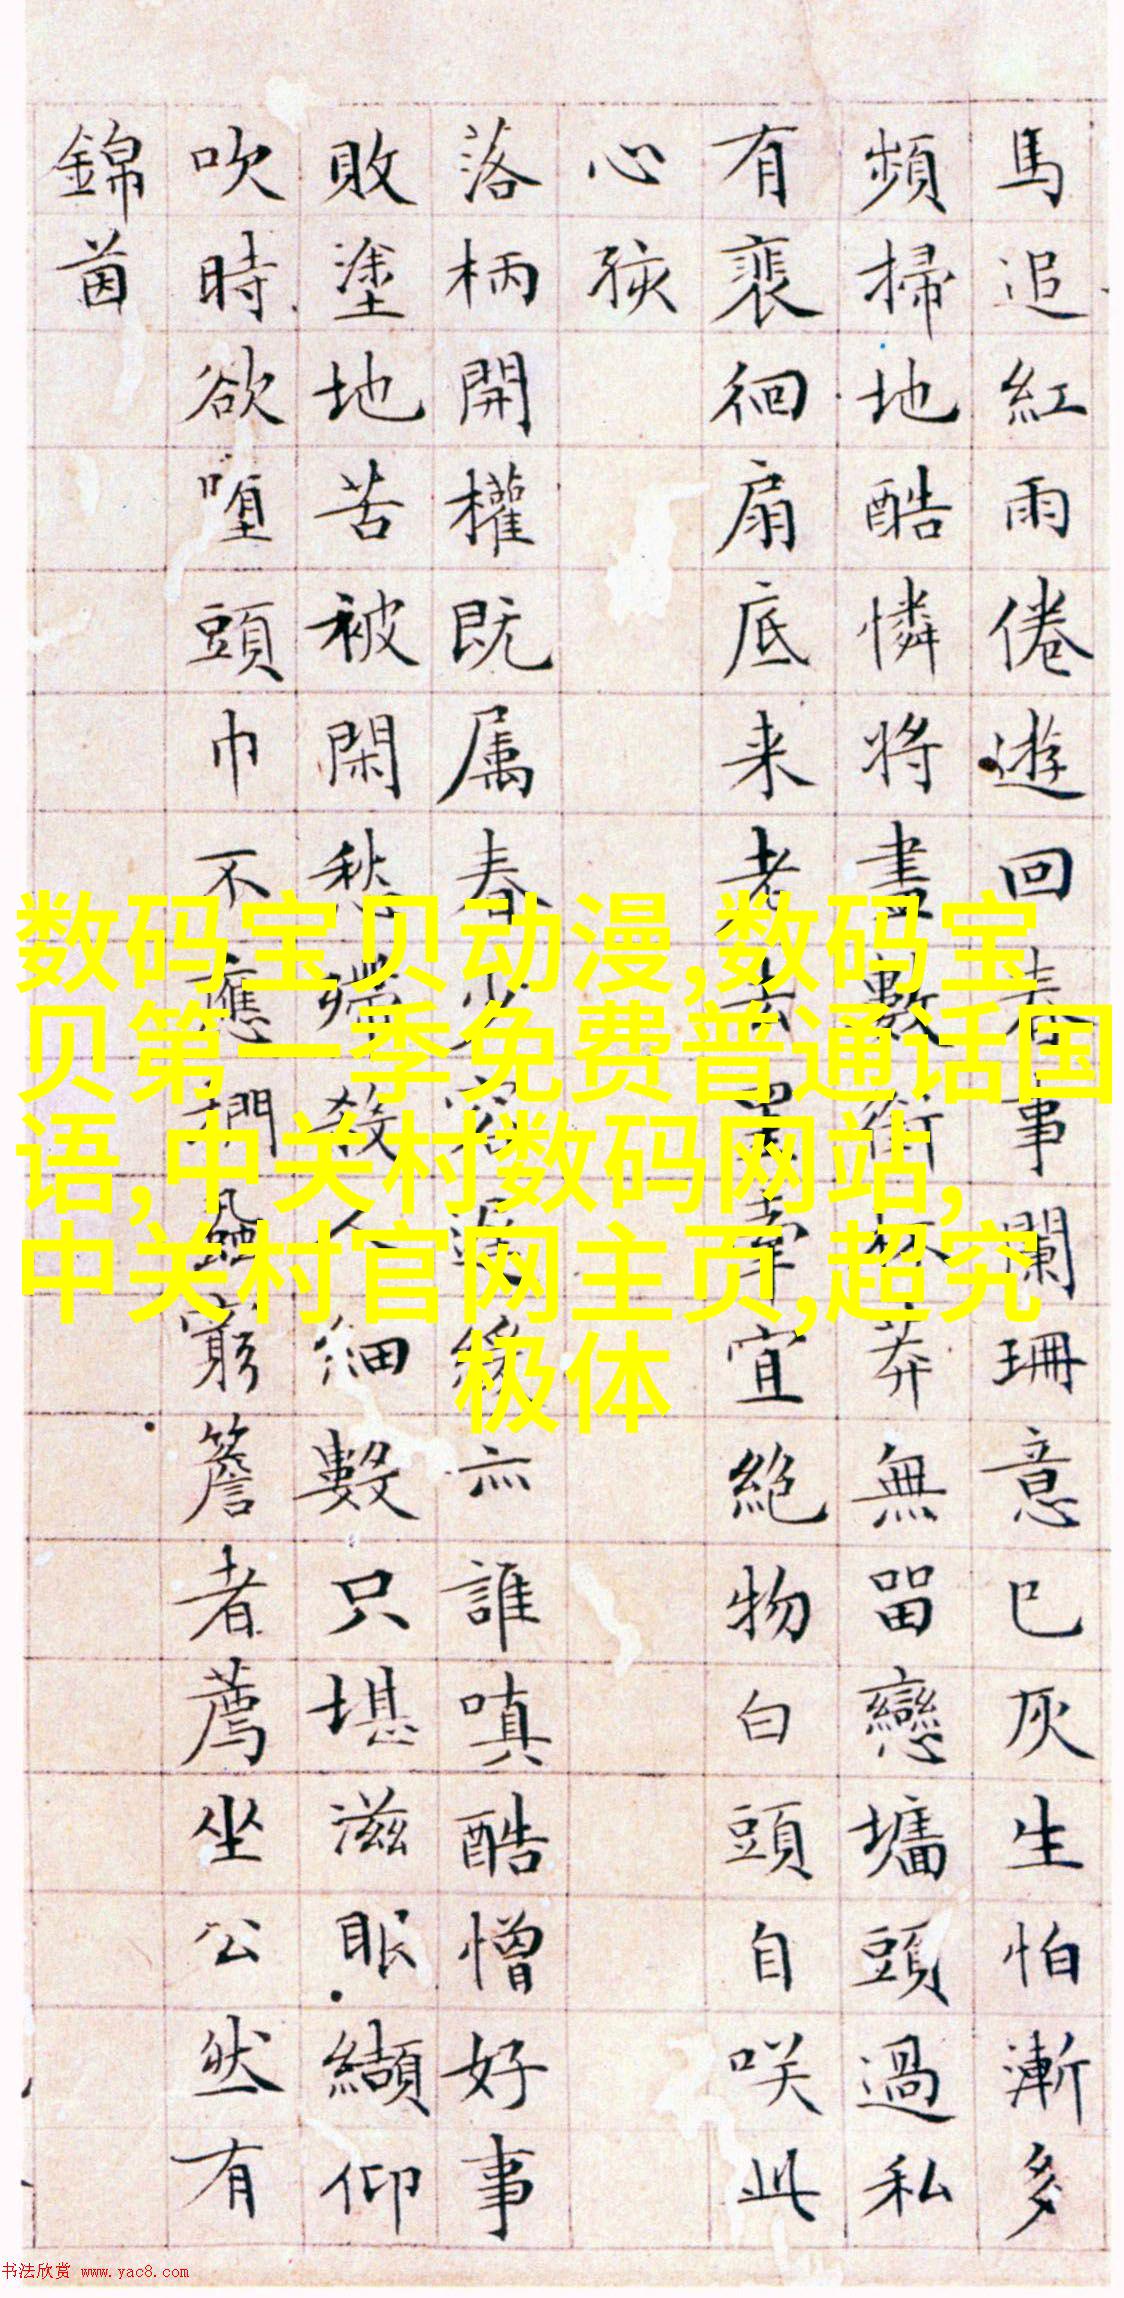 馬追紅雨倦遊回春事闌珊意已灰生怕漸多
頻掃地酷憐將盡數銜杯莽無留戀墻頭過私
有裴徊扇底来老去罣牽宜絶物白頭自咲此
心孩
落柄開權既属春少容遲緩亦誰嗔酷憎好事
敗塗地苦被閑愁殢殺人細數只堪滋眼纈仰
吹時欲唾頭巾不應捫蝨窮簷者薦坐公然有
錦茵
数码宝贝动漫,数码宝
贝第一季免费普通话国
语,中关村数码网站,
中关村官网主页,超究
极体
书法欣赏 www.yac8.com